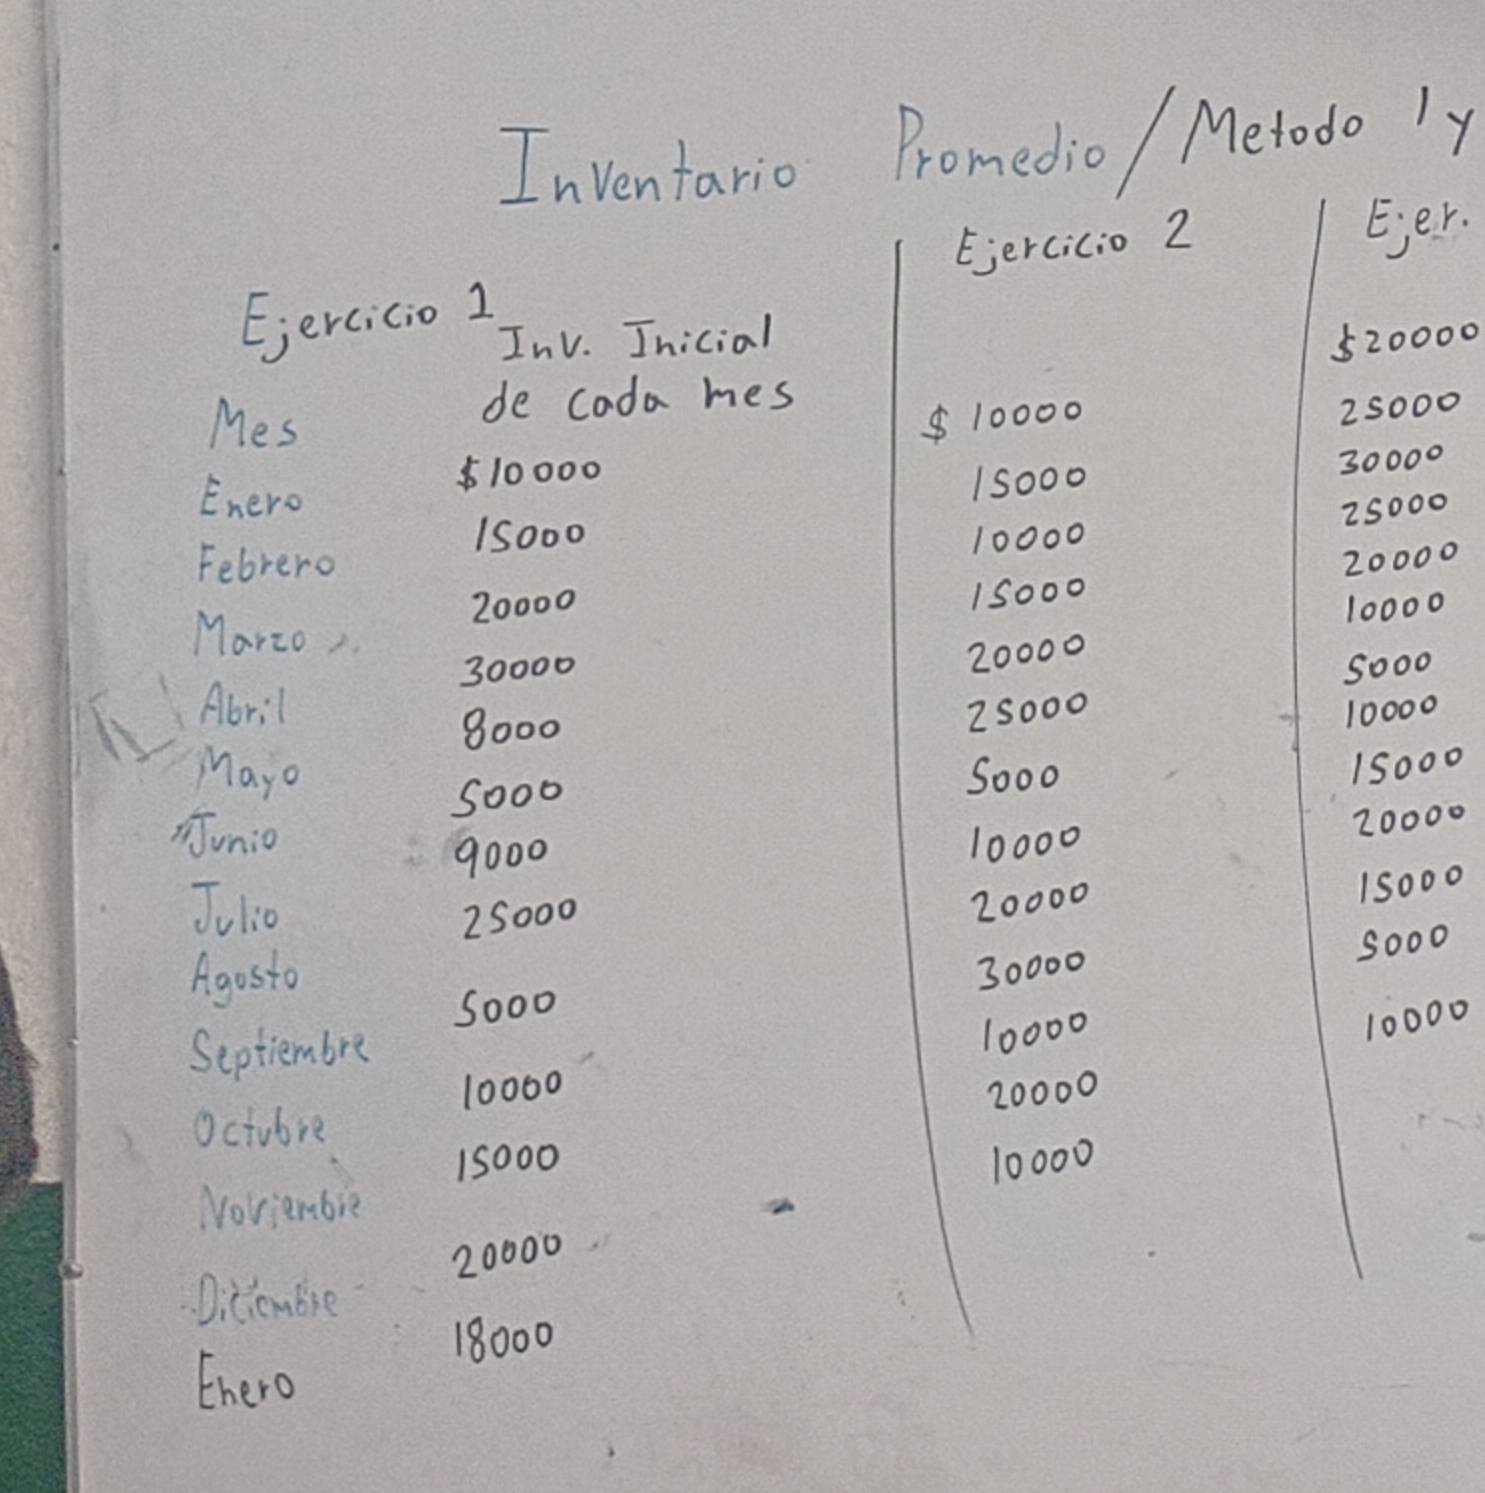 Inventario Promedio / Metodo 1 y
Ejercicio 1
Mes
Inv. Inicial
de cada mes
Enero $10000
Febrero 15000
Marzo 20000
Abril 30000
Mayo 8000
Junio 5000
Julio 9000
Agosto 25000
Septiembre 5000
Octubre 10000
Noviembre 15000
Diciembre 20000
Enero 18000
Ejercicio 2
$ 10000
15000
10000
15000
20000
25000
5000
10000
20000
30000
10000
20000
10000
Ejer.
$20000
25000
30000
25000
20000
10000
5000
10000
15000
20000
15000
5000
10000